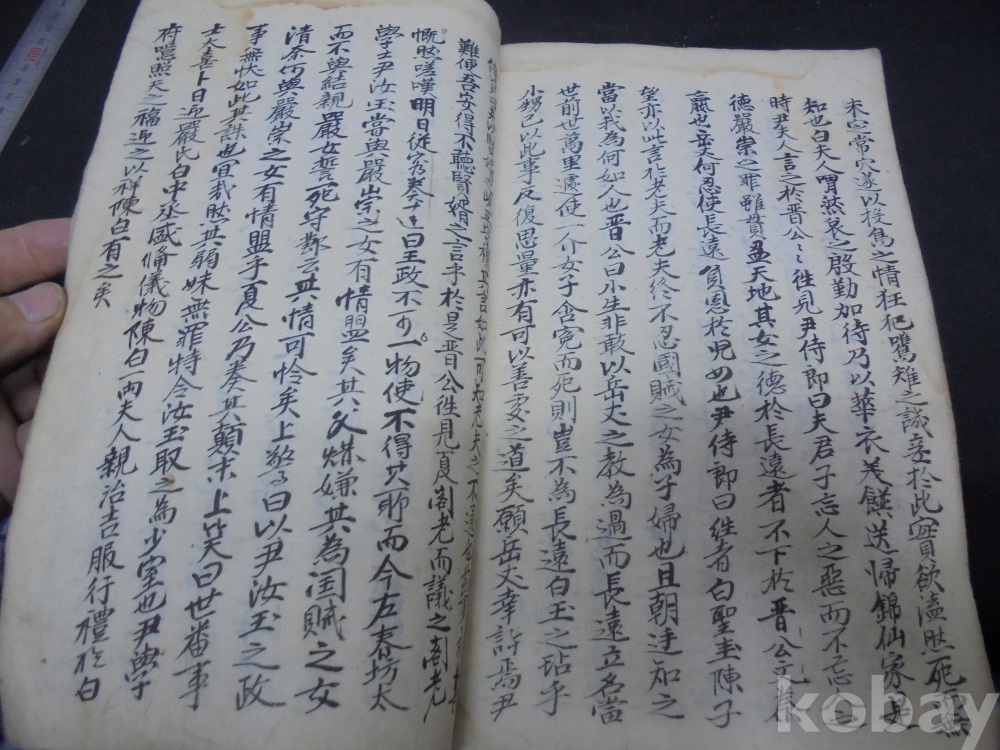 未亡當穴遂以投雋之情狂犯鷕雉之誠妾於此實欲溘然死而無
知也白夫人喟然哀之殷勤加待乃以華衣美饌送歸錦仙家
時尹夫人言之於晋公公往見尹侍郎曰夫君子忘人之惡而不忘
德嚴崇之罪雖貫盈天地其女之德於長遠者不下於晋公
岳丈何忍使長遠負恩於兒女也尹侍郎曰往者白聖圭陳子
望亦以此言於老夫而老夫終不忍國賊之女為子婦也且朝廷知之
當以我為何如人也晋公曰小生非敢以岳丈之教為過而長遠立名當
世前世萬里遽使一介女子含寃而死則豈不為長遠白玉之玷乎
小甥已以此事反復思量亦有可以善處之道矣願岳丈幸許焉尹
難使吾安得不聽賢婿之言乎於是晋公往見夏閣老而議之閣老
慨然嗟嘆明日從容奏達曰王政不可一物使不得其所而今左春坊太
學士尹汝玉當與嚴崇之女有情盟矣其父烋嫌其為国賊之女
而不與結親嚴女誓死守鄴云其情可怜矣上驚曰以尹汝玉之政
清奈何與嚴崇之女有情盟乎夏公乃奏其顛末上笑曰世番事
事無快如此其誅也冝哉然其弱妹無罪特令汝玉取之為少室也尹學
士大喜卜日迎嚴氏白中丞盛俻儀物陳白两夫人親治吉服行禮於白
府噫照天之福近之以祥陳白有之矣
kobay